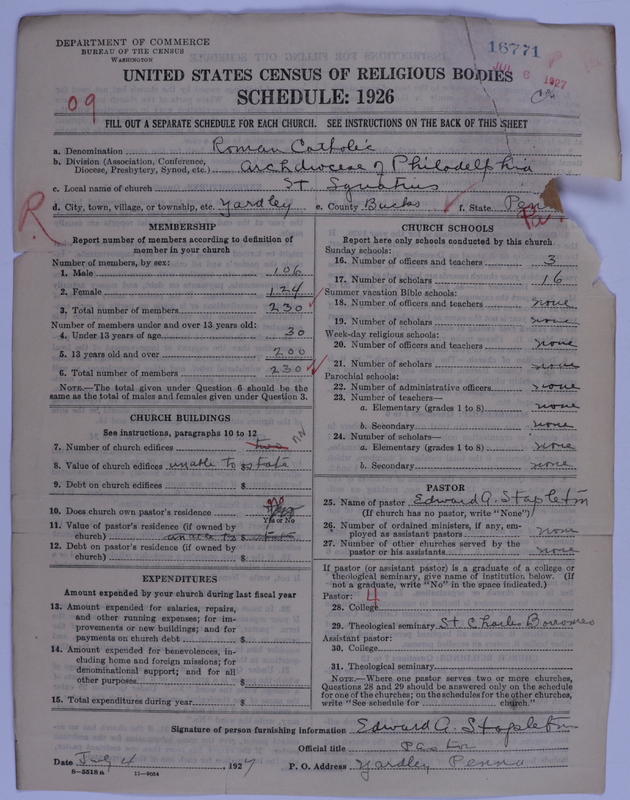 DEPARTMENT OF COMMERCE
BUREAU OF THE CENSUS
WASHINGTON
16771
JUL 6 1927
UNITED STATES CENSUS OF RELIGIOUS BODIES
SCHEDULE: 1926
09
FILL OUT A SEPARATE SCHEDULE FOR EACH CHURCH. SEE INSTRUCTIONS ON THE BACK OF THIS SHEET
a. Denomination Roman Catholic
b. Division (Association, Conference, Diocese, Presbytery, Synod, etc.) Archdiocese of Philadelphia
c. Local name of church St Ignatius
d. City, town, village, or township, etc. Yardley e. County Bucks f. State Penn
R Pa
MEMBERSHIP
Report number of members according to definition of
member in your church
Number of members, by sex:
1. Male 106
2. Female 124
3. Total number of members 230
Number of members under and over 13 years old:
4. Under 13 years of age 30
5. 13 years old and over 200
6. Total number of members 230
NOTE.—The total given under Question 6 should be the
same as the total of males and females given under Question 3.
CHURCH BUILDINGS
See instructions, paragraphs 10 to 12
7. Number of church edifices two
8. Value of church edifices unable to state $
9. Debt on church edifices $
10. Does church own pastor's residence no
Yes or No
11. Value of pastor's residence (if owned by
church) unable to state $
12. Debt on pastor's residence (if owned by
church) $
EXPENDITURES
Amount expended by your church during last fiscal year
13. Amount expended for salaries, repairs,
and other running expenses; for im-
provements or new buildings; and for
payments on church debt $
14. Amount expended for benevolences, in-
cluding home and foreign missions; for
denominational support; and for all
other purposes $
15. Total expenditures during year $
CHURCH SCHOOLS
Report here only schools conducted by this church
Sunday schools:
16. Number of officers and teachers 3
17. Number of scholars 16
Summer vacation Bible schools:
18. Number of officers and teachers none
19. Number of scholars none
Week-day religious schools:
20. Number of officers and teachers none
21. Number of scholars none
Parochial schools:
22. Number of administrative officers none
23. Number of teachers—
a. Elementary (grades 1 to 8) none
b. Secondary none
24. Number of scholars—
a. Elementary (grades 1 to 8) none
b. Secondary none
PASTOR
25. Name of pastor Edward A. Stapleton
(If church has no pastor, write "None")
26. Number of ordained ministers, if any, em-
ployed as assistant pastors none
27. Number of other churches served by the
pastor or his assistants none
If pastor (or assistant pastor) is a graduate of a college or
theological seminary, give name of institution below. (If
not a graduate, write "No" in the space indicated.)
Pastor: 4
28. College
29. Theological seminary St Charles Borromeo
Assistant pastor:
30. College
31. Theological seminary
NOTE.—Where one pastor serves two or more churches,
Questions 28 and 29 should be answered only on the schedule
for one of the churches; on the schedules for the other churches,
write "See schedule for church."
Signature of person furnishing information Edward A. Stapleton
Official title Pastor
Date July 4, 1927 P. O. Address Yardley Penna
8—5518a 11—9054